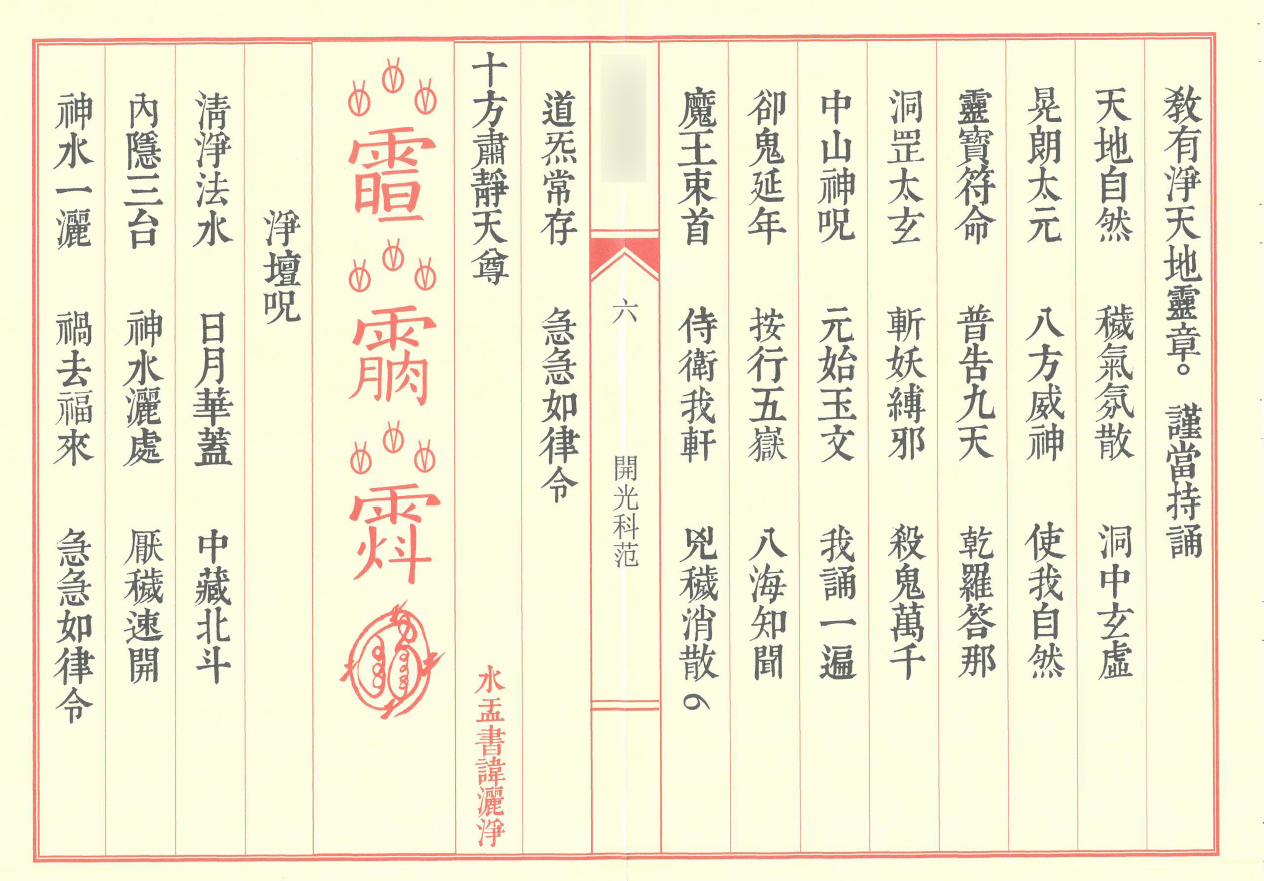 教有淨天地靈章。謹當持誦
天地自然 穢氣氛散 洞中玄虛
晃朗太元 八方威神 使我自然
靈寶符命 普告九天 乾羅答那
洞罡太玄 斬妖縛邪 殺鬼萬千
中山神呪 元始玉文 我誦一遍
卻鬼延年 按行五嶽 八海知聞
魔王束首 侍衛我軒 兇穢消散
六 開光科范
道炁常存 急急如律令
十方肅靜天尊 水盂書諱灑淨
淨壇呪
清淨法水 日月華蓋 中藏北斗
內隱三台 神水灑處 厭穢速開
神水一灑 禍去福來 急急如律令